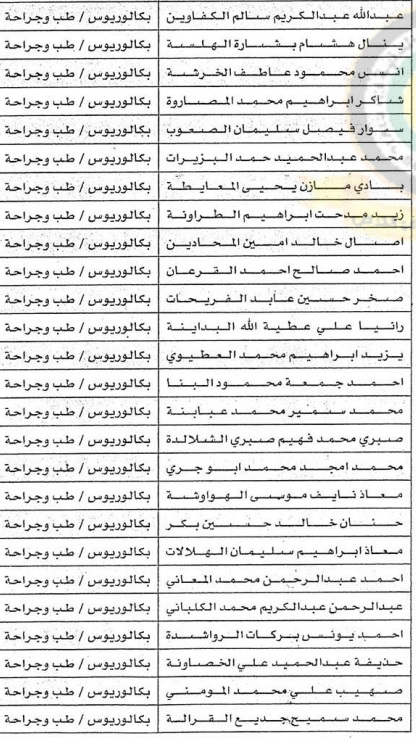 عبدالله عبدالكريم سالم الكفاوين بكالوريوس / طب وجراحة
ينال هشام بشارة الهلسة بكالوريوس / طب وجراحة
انس محمود عاطف الخرشة بكالوريوس / طب وجراحة
شاكر ابراهيم محمد المصاروة بكالوريوس / طب وجراحة
سوار فيصل سليمان الصعوب بكالوريوس / طب وجراحة
محمد عبدالحميد حمد البزيرات بكالوريوس / طب وجراحة
بادي مازن يحيى المعايطة بكالوريوس / طب وجراحة
زيد مدحت ابراهيم الطراونة بكالوريوس / طب وجراحة
اصال خالد امين المحادين بكالوريوس / طب وجراحة
احمد صالح احمد القرعان بكالوريوس / طب وجراحة
صخر حسين عابد الفريحات بكالوريوس / طب وجراحة
رانيا علي عطية الله البداينة بكالوريوس / طب وجراحة
يزيد ابراهيم محمد العطيوي بكالوريوس / طب وجراحة
احمد جمعة محمود البنا بكالوريوس / طب وجراحة
محمد سمير محمد عبابنة بكالوريوس / طب وجراحة
صبري محمد فهيم صبري الشلالدة بكالوريوس / طب وجراحة
محمد امجد محمد ابو جري بكالوريوس / طب وجراحة
معاذ نايف موسى الهواوشة بكالوريوس / طب وجراحة
حنان خالد حسين بكر بكالوريوس / طب وجراحة
معاذ ابراهيم سليمان الهلالات بكالوريوس / طب وجراحة
احمد عبدالرحمن محمد المعاني بكالوريوس / طب وجراحة
عبدالرحمن عبدالكريم محمد الكلباني بكالوريوس / طب وجراحة
احمد يونس بركات الرواشدة بكالوريوس / طب وجراحة
حذيفة عبدالحميد علي الخصاونة بكالوريوس / طب وجراحة
صهيب علي محمد المومني بكالوريوس / طب وجراحة
محمد سميح جديع القرالة بكالوريوس / طب وجراحة